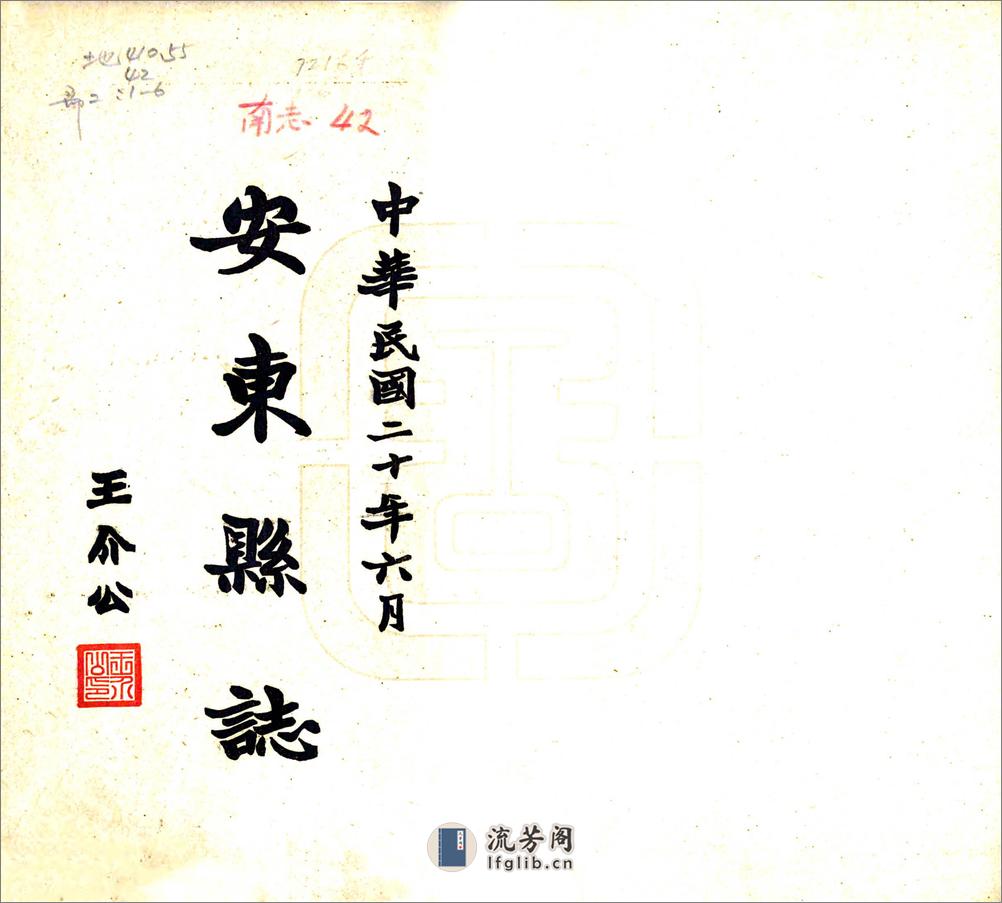 地410.55
42
部二:1-6
南志 42
中華民國二十年六月
安東縣誌
王介公
王介公印
流芳阁
lfglib.cn